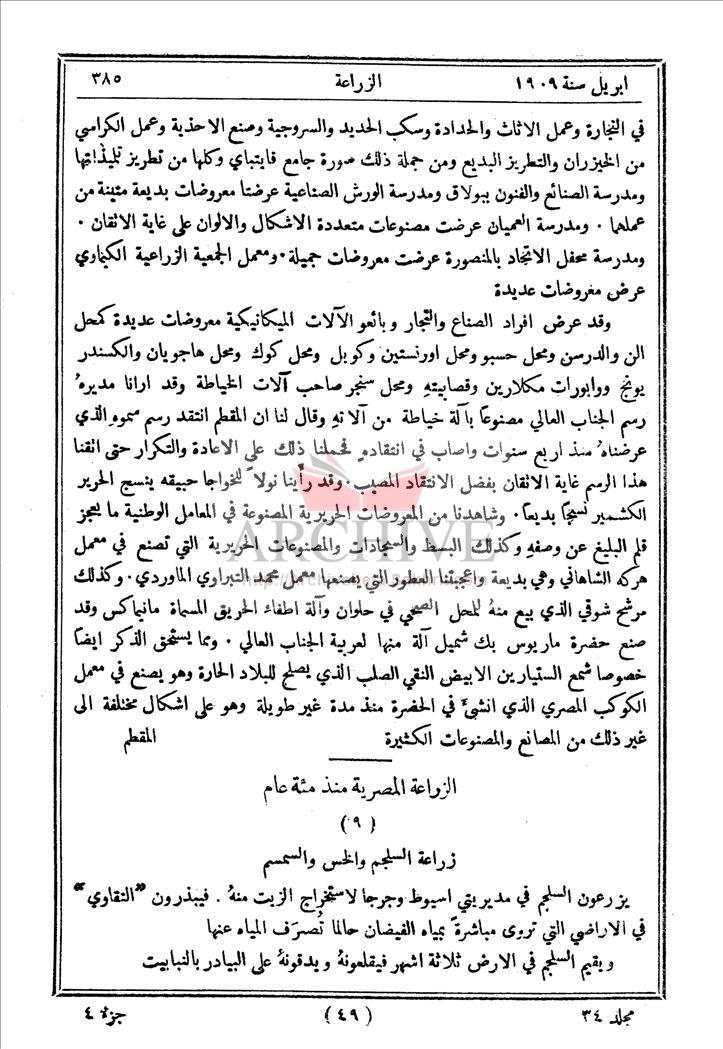 ابريل سنة ١٩٠٩ الزراعة ٣٨٥
في النجارة وعمل الاثاث والحدادة وسكب الحديد والسروجية وصنع الاحذية وعمل الكراسي
من الخيزران والتطريز البديع ومن جملة ذلك صورة جامع قايتباي وكلها من تطريز تليذاتها
ومدرسة الصنائع والفنون ببولاق ومدرسة الورش الصناعية عرضتا معروضات بديعة متينة من
عملهما ٠ ومدرسة العميان عرضت مصنوعات متعددة الاشكال والالوان على غاية الاتقان ٠
ومدرسة محفل الاتحاد بالمنصورة عرضت معروضات جميلة ٠ ومعمل الجمعية الزراعية الكيماوي
عرض معروضات عديدة
وقد عرض افراد الصناع والتجار وبائعو الآلات الميكانيكية معروضات عديدة كمحل
الن والدرسن ومحل حسبو ومحل اورنستين وكوبل ومحل كوك ومحل هاجويان والكسندر
يونج ووابورات مكلارين وقصابيته ومحل سنجر صاحب آلات الخياطة وقد ارانا مديرهُ
رسم الجناب العالي مصنوعاً بآلة خياطة من آلاته وقال لنا ان المقطم انتقد رسم سموه الذي
عرضناهُ منذ اربع سنوات واصاب في انتقاده فحملنا ذلك على الاعادة والتكرار حتى اتقنا
هذا الرسم غاية الاتقان بفضل الانتقاد المصيب ٠ وقد رأينا نولاً للخواجا حبيقه ينسج الحرير
الكشمير نسيجًا بديعاً ٠ وشاهدنا من المعروضات الحريرية المصنوعة في المعامل الوطنية ما يعجز
قلم البليغ عن وصفهِ وكذلك البسط والسجادات والمصنوعات الحريرية التي تصنع في معمل
هركه الشاهاني وهي بديعة واعجبتنا العطور التي يصنعها معمل محمد التبراوي الماوردي ٠ وكذلك
مرشح شوقي الذي بيع منهُ للمحل الصحي في حلوان وآلة اطفاء الحريق المسماة مانيماكس وقد
صنع حضرة ماريوس بك شميل آلة منها لعربية الجناب العالي ٠ ومما يستحق الذكر ايضاً
خصوصا شمع الستيارين الابيض النقي الصلب الذي يصلح للبلاد الحارة وهو يصنع في معمل
الكوكب المصري الذي انشئ في الحضرة منذ مدة غير طويلة وهو على اشكال مختلفة الى
غير ذلك من المصانع والمصنوعات الكثيرة المقطم
الزراعة المصرية منذ مئة عام
( ٩ )
زراعة السلجم والخس والسمسم
يزرعون السلجم في مديريتي اسيوط وجرجا لاستخراج الزيت منهُ . فيبذرون "التقاوي"
في الاراضي التي تروى مباشرةً بمياه الفيضان حالما تُصرَف المياه عنها
ويقيم السلجم في الارض ثلاثة اشهر فيقلعونهُ ويدقونهُ على البيادر بالنبابيت
مجلد ٣٤ ( ٤٩ ) جزء ٤
ARCHIVE